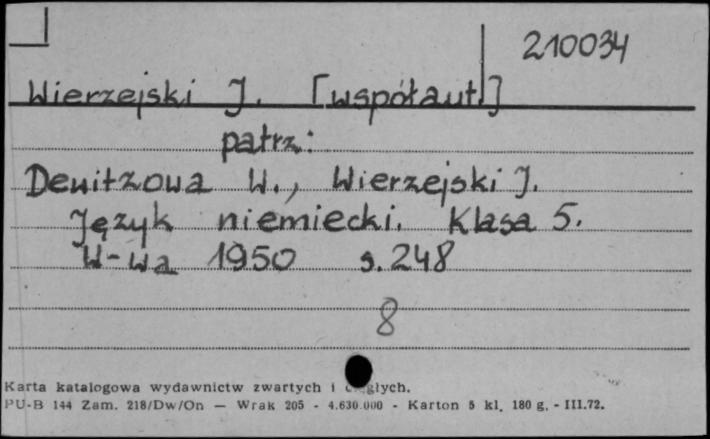 210034
Wierzejski J. [współaut.]
patrz:
Dewitzowa W., Wierzejski J.
Język niemiecki. Klasa 5.
W-wa 1950 s. 248
8
Karta katalogowa wydawnictw zwartych i
PU-B 144 Zam. 218/Dw/On — Wrak 205 - 4.630.000 - Karton 5 kl. 180 g. - III.72.